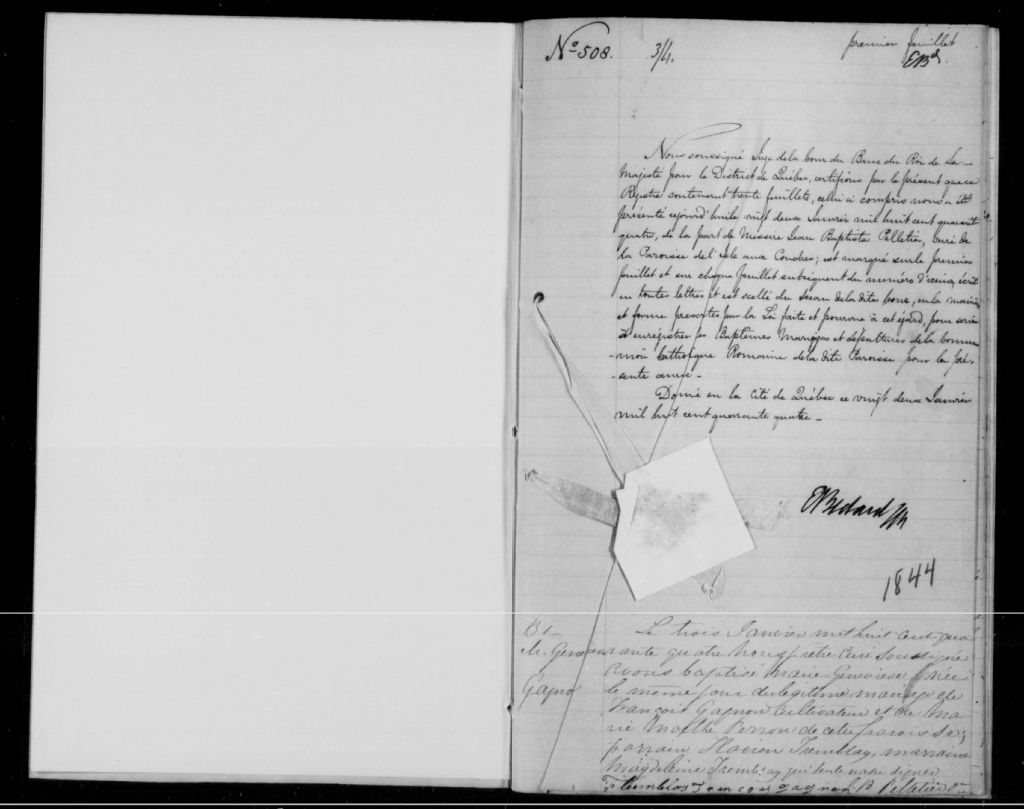 No 508.
3/4.
premier feuillet
EBd.
Nous soussigné Juge de la Cour du Banc du Roi de Sa
Majesté pour le District de Québec, certifions par le présent que ce
Régistre contenant trente feuillets, celui-ci compris nous a été
présenté cejourd'hui le vingt deux Janvier mil huit cent quarante
quatre, de la part de Messire Jean Baptiste Pelletier, Curé de
la Paroisse de l'isle aux Coudres; est marqué sur le premier
feuillet et sur chaque feuillet subséquent du numéro d'iceux, écrit
en toutes lettres et est scellé du Sceau de la dite Cour, en la manière
et forme prescrites par la Loi faite et pourvue à cet égard, pour servir
à enregistrer les Baptêmes Mariages et Sépultures de la Commu
-nion Catholique Romaine de la dite Paroisse pour la pré-
-sente année -
Donné en la Cité de Québec ce vingt deux Janvier
mil huit cent quarante quatre -
EBedard
1844
B 1
M. Geneviève
Gagnon
Le trois Janvier mil huit cent qua
rante quatre Nous prêtre Curé Soussigné
avons baptisé Marie Geneviève née
le même jour du légitime mariage de
François Gagnon Cultivateur et de Ma
rie Marthe Perron de cette paroisse
parrain Tremblay, marraine
Magdeleine Tremblay qui
Tremblay François gagnon B Pelletier